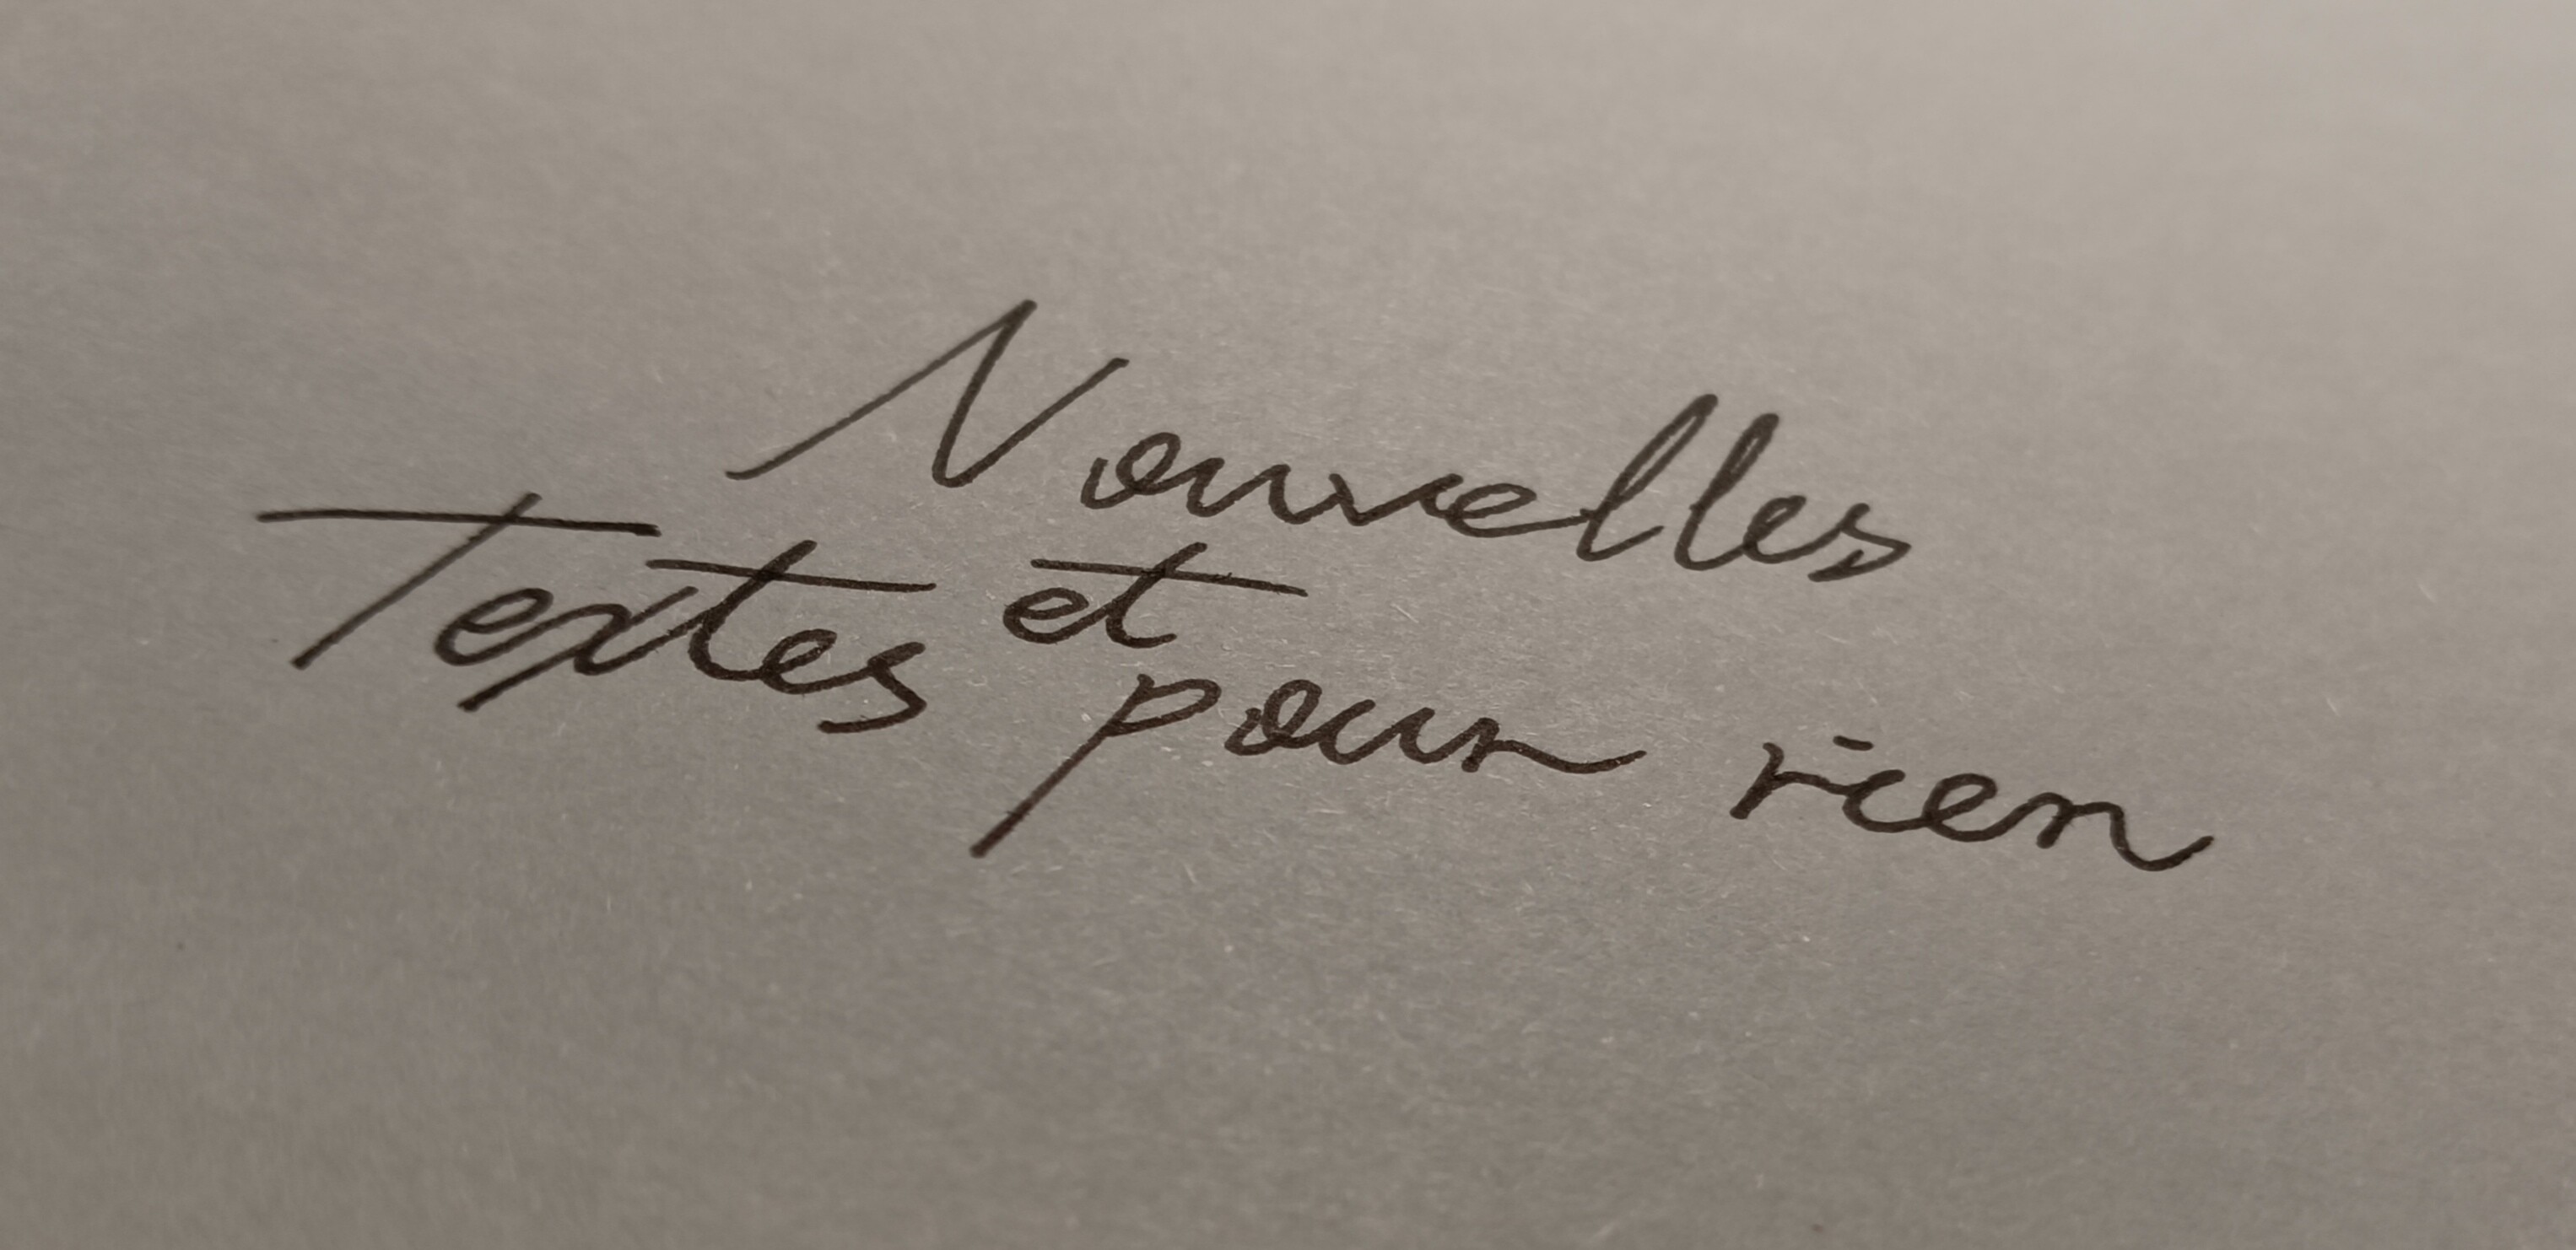 Nouvelles
et
Textes pour rien